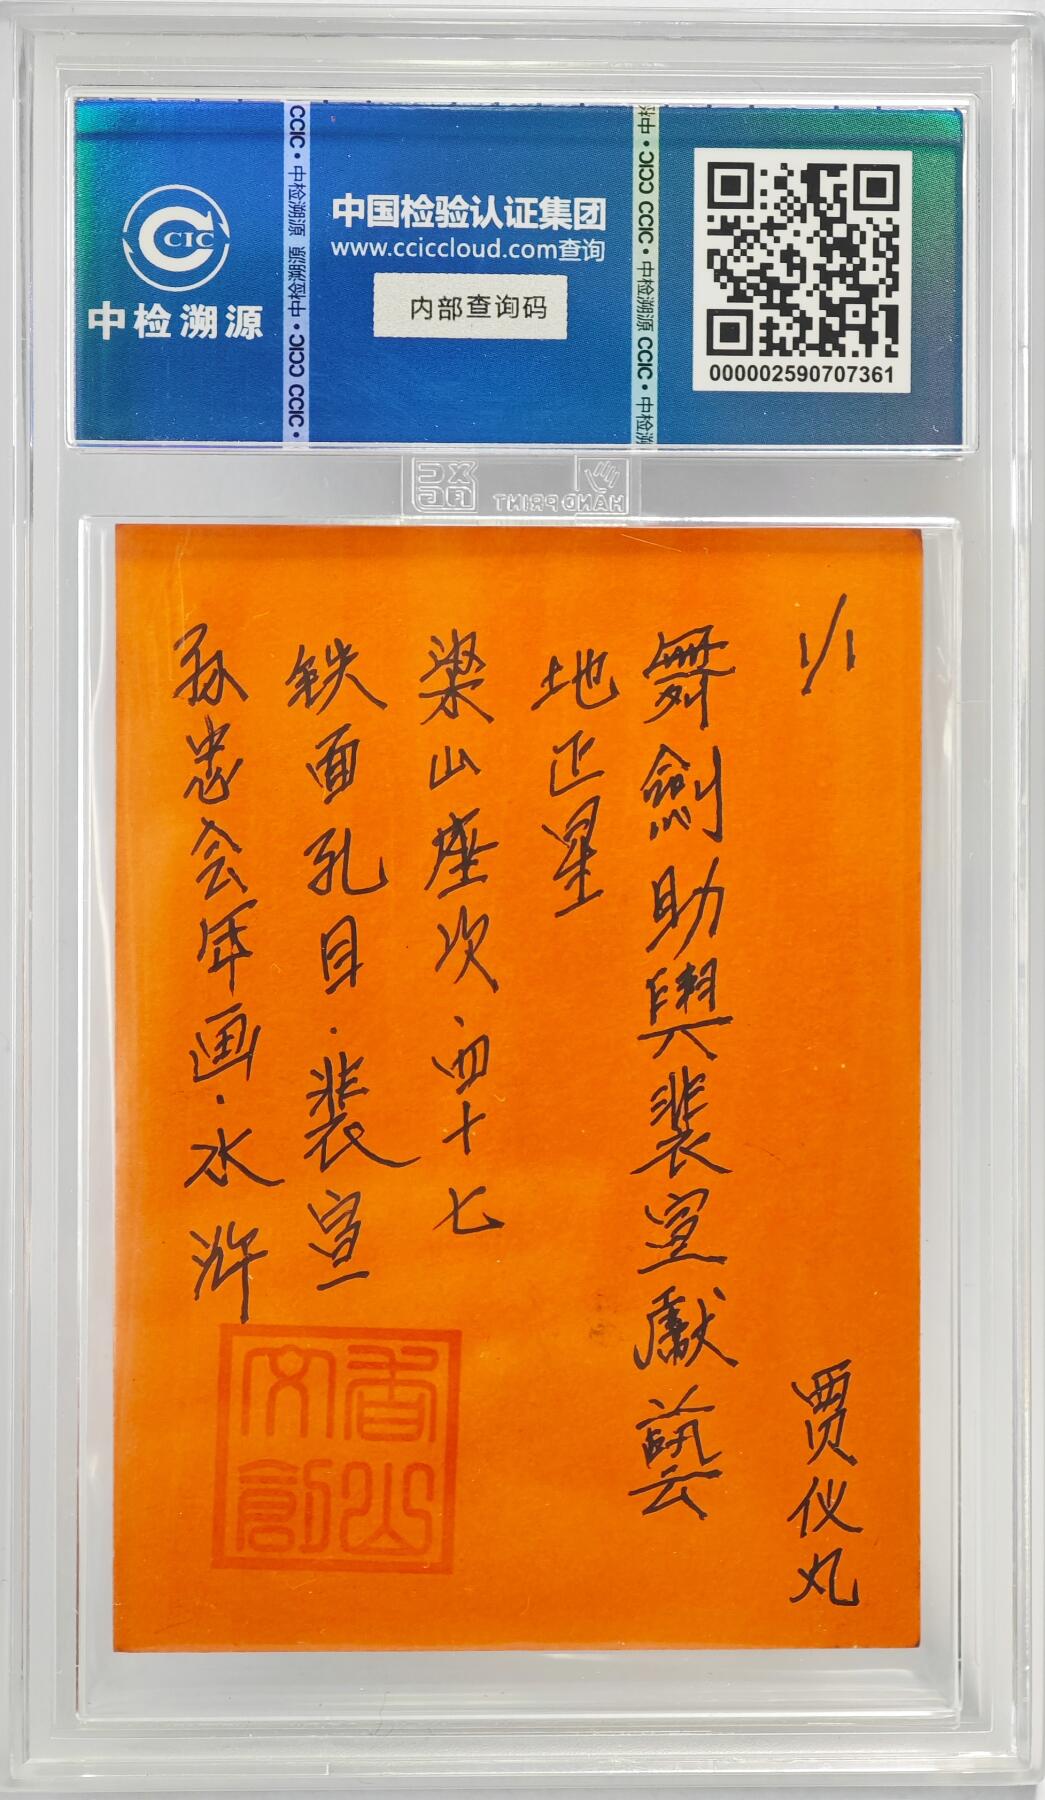 CCIC
中检溯源
CCIC • 中检溯源 中检溯源 • CCIC CCIC •
中国检验认证集团
www.cciccloud.com查询
内部查询码
中检 • CCIC CCIC • 中检溯源 CCIC • 中检溯
000002590707361
HAND PRINT
1/1
贾仪丸
舞劍助興裴宣獻藝
地正星
梁山座次·四十七
铁面孔目·裴宣
孙忠会年画·水浒
香山
文創